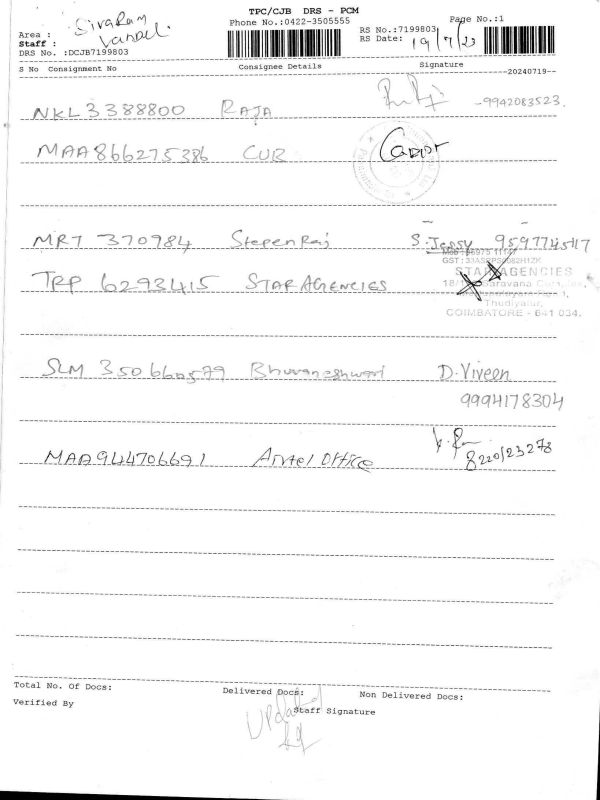 TPC/CJB DRS - PCM
Phone No.:0422-3505555 Page No.:1
SivaRam
Area : RS No.:7199803
Staff : RS Date: 19/7/23
DRS No. :DCJB7199803
S No Consignment No Consignee Details Signature
--20240719--
NKL 3388800 RAJA -9942083523.
MAA866275386 CUB
MRT 370984 StepenRaj S.Jessy 9597745117
GST:
TRP 6293415 STAR AGENCIES STAR AGENCIES
18/ Saravana
Thudiyalur,
COIMBATORE - 641 034.
SLM 350660579 Bhuvaneshwari D.Viveen
9994178304
MAA944706691 Airtel Office 8220123278
Total No. Of Docs: Delivered Docs: Non Delivered Docs:
Verified By Staff Signature
Updated